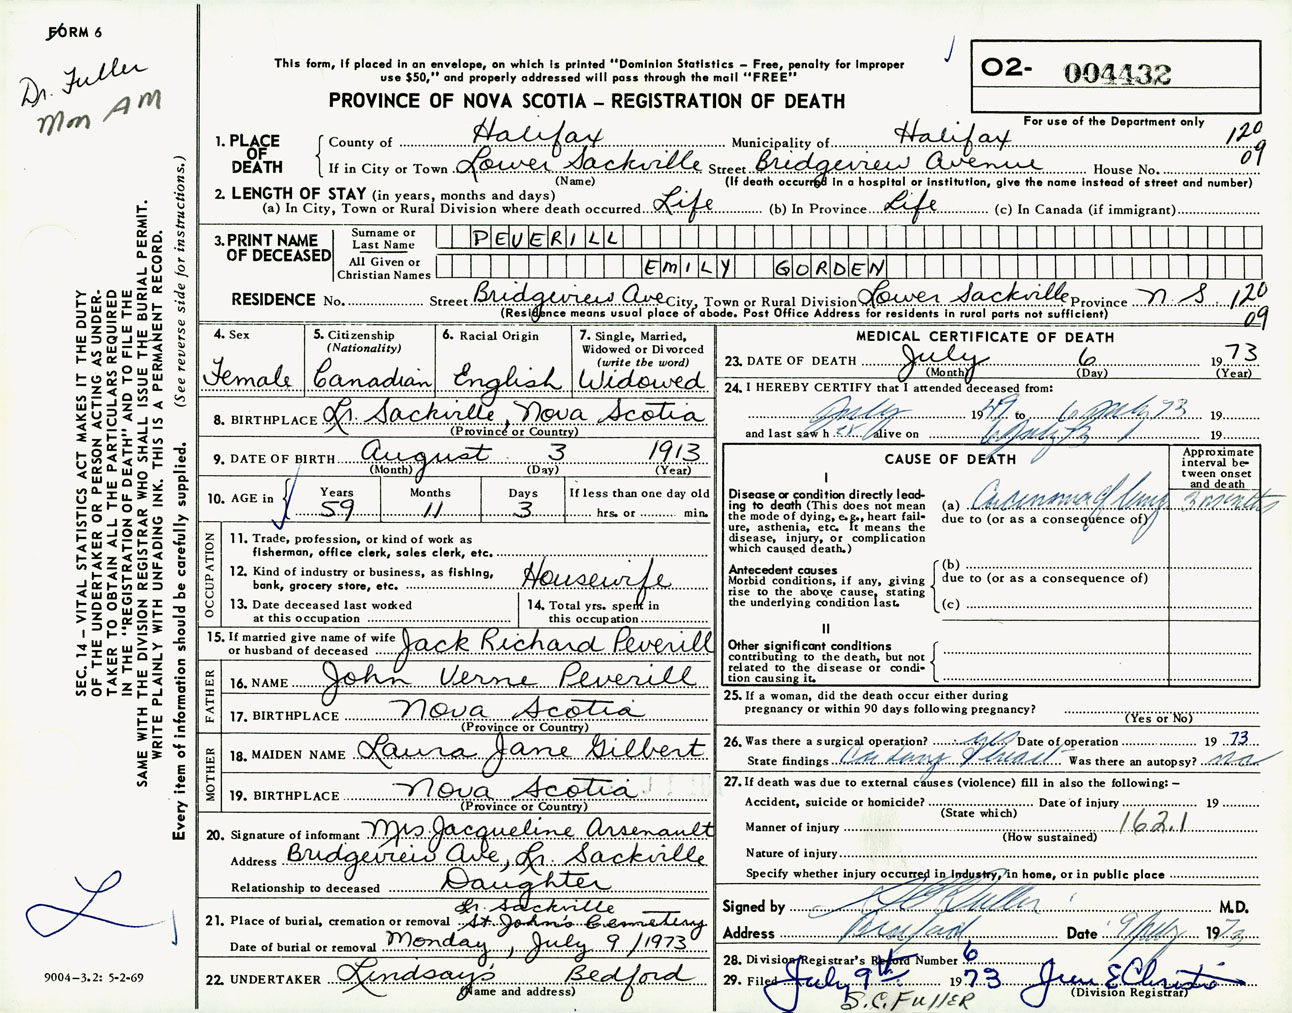 FORM 6
Dr. Fuller
Mon AM
This form, if placed in an envelope, on which is printed "Dominion Statistics – Free, penalty for improper
use $50," and properly addressed will pass through the mail "FREE"
PROVINCE OF NOVA SCOTIA – REGISTRATION OF DEATH
O2- 004432
For use of the Department only
120
09
1. PLACE OF DEATH
County of Halifax Municipality of Halifax
If in City or Town Lower Sackville Street Bridgeview Avenue House No.
(Name) (If death occurred in a hospital or institution, give the name instead of street and number)
2. LENGTH OF STAY (in years, months and days)
(a) In City, Town or Rural Division where death occurred Life (b) In Province Life (c) In Canada (if immigrant)
3. PRINT NAME OF DECEASED
Surname or Last Name PEVERILL
All Given or Christian Names EMILY GORDEN
RESIDENCE No. Street Bridgeview Ave City, Town or Rural Division Lower Sackville Province N.S. 120
09
(Residence means usual place of abode. Post Office Address for residents in rural parts not sufficient)
4. Sex
Female
5. Citizenship
(Nationality)
Canadian
6. Racial Origin
English
7. Single, Married,
Widowed or Divorced
(write the word)
Widowed
8. BIRTHPLACE Lr. Sackville, Nova Scotia
(Province or Country)
9. DATE OF BIRTH August 3 1913
(Month) (Day) (Year)
10. AGE in
Years Months Days If less than one day old
59 11 3 hrs. or min.
OCCUPATION
11. Trade, profession, or kind of work as
fisherman, office clerk, sales clerk, etc.
12. Kind of industry or business, as fishing,
bank, grocery store, etc. Housewife
13. Date deceased last worked
at this occupation
14. Total yrs. spent in
this occupation
15. If married give name of wife
or husband of deceased Jack Richard Peverill
FATHER
16. NAME John Verne Peverill
17. BIRTHPLACE Nova Scotia
(Province or Country)
MOTHER
18. MAIDEN NAME Laura Jane Gilbert
19. BIRTHPLACE Nova Scotia
(Province or Country)
20. Signature of informant Mrs. Jacqueline Arsenault
Address Bridgeview Ave, Lr. Sackville
Relationship to deceased Daughter
Lr. Sackville
21. Place of burial, cremation or removal St. John's Cemetery
Date of burial or removal Monday, July 9/1973
22. UNDERTAKER Lindsay's Bedford
(Name and address)
MEDICAL CERTIFICATE OF DEATH
23. DATE OF DEATH July 6 1973
(Month) (Day) (Year)
24. I HEREBY CERTIFY that I attended deceased from:
July 19 to 6 July 73 19
and last saw h er alive on 6 July 73 19
CAUSE OF DEATH
Approximate
interval be-
tween onset
and death
I
Disease or condition directly lead-
ing to death (This does not mean
the mode of dying, e.g., heart fail-
ure, asthenia, etc. It means the
disease, injury, or complication
which caused death.)
(a) Carcinoma of lung 3 months
due to (or as a consequence of)
Antecedent causes
Morbid conditions, if any, giving
rise to the above cause, stating
the underlying condition last.
(b)
due to (or as a consequence of)
(c)
II
Other significant conditions
contributing to the death, but not
related to the disease or condi-
tion causing it.
25. If a woman, did the death occur either during
pregnancy or within 90 days following pregnancy?
(Yes or No)
26. Was there a surgical operation? yes Date of operation 19 73
State findings Was there an autopsy? no
27. If death was due to external causes (violence) fill in also the following: –
Accident, suicide or homicide? Date of injury 19
(State which)
Manner of injury 162.1
(How sustained)
Nature of injury
Specify whether injury occurred in industry, in home, or in public place
Signed by Fuller M.D.
Address Date 9 July 1973
28. Division Registrar's Record Number 6
29. Filed July 9th. 1973
(Division Registrar)
S.C. FULLER
SEC. 14 – VITAL STATISTICS ACT MAKES IT THE DUTY
OF THE UNDERTAKER OR PERSON ACTING AS UNDER-
TAKER TO OBTAIN ALL THE PARTICULARS REQUIRED
IN THE "REGISTRATION OF DEATH" AND TO FILE THE
SAME WITH THE DIVISION REGISTRAR WHO SHALL ISSUE THE BURIAL PERMIT.
WRITE PLAINLY WITH UNFADING INK. THIS IS A PERMANENT RECORD.
Every item of information should be carefully supplied. (See reverse side for instructions.)
9004–3.2: 5-2-69